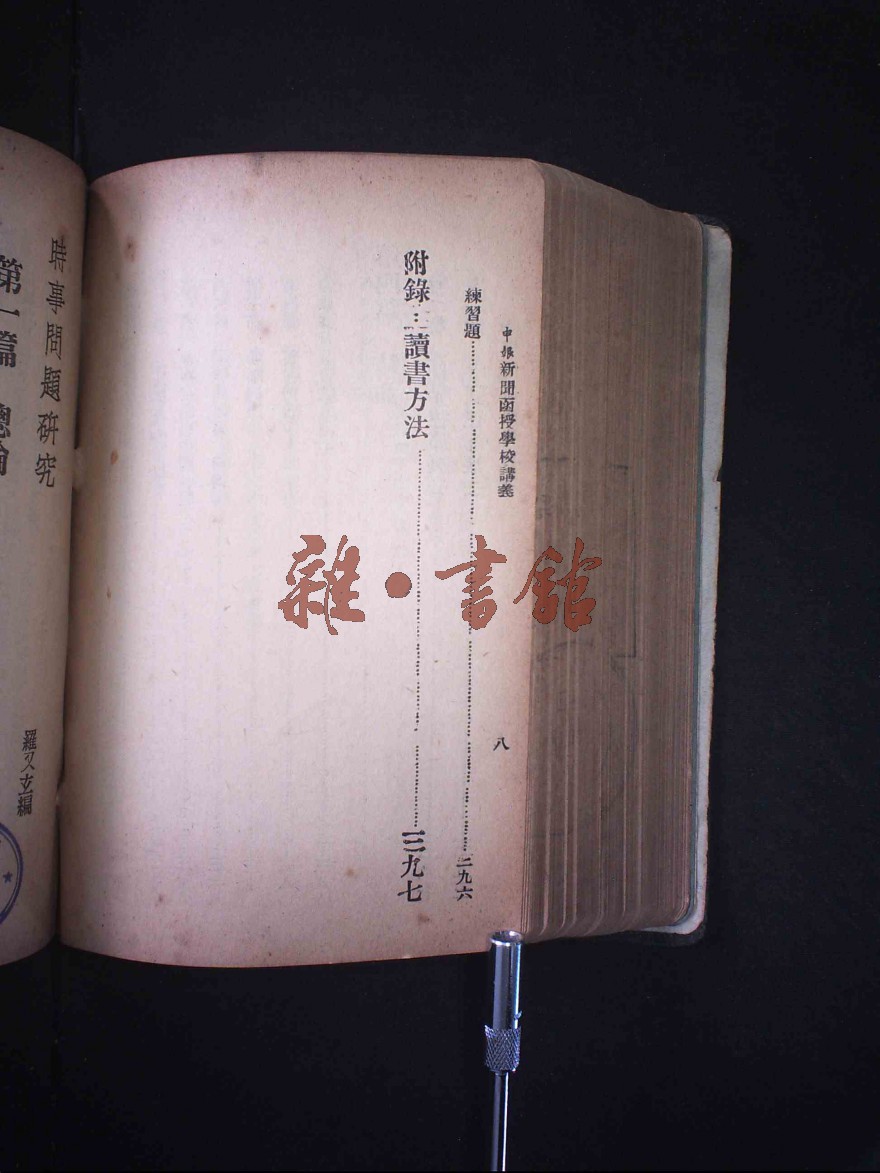 申報新聞函授學校講義
八
練習題……二九六
附錄:讀書方法……二九七
時事問題研究
羅又玄編
第一篇 總論
雜·書館